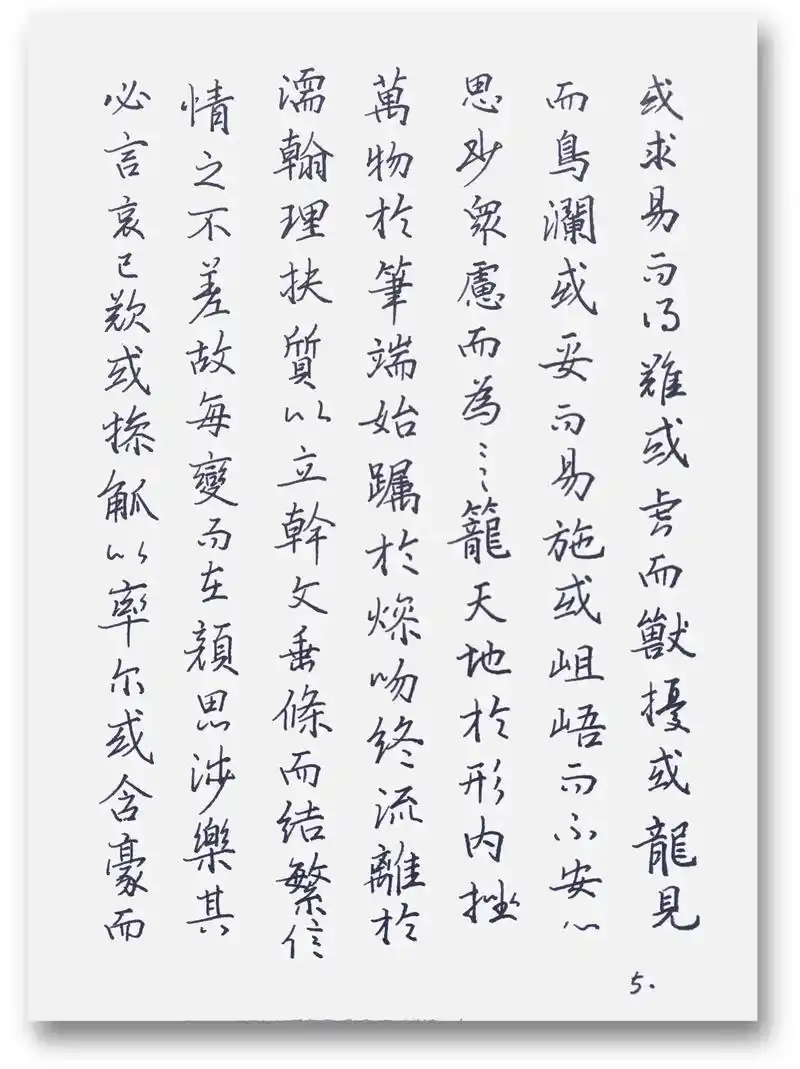 或求易而得難或虎而獸擾或龍見
而鳥瀾或妥而易施或岨峿而不安心
思眇眾慮而為…籠天地於形內挫
萬物於筆端始躅於燥吻終流離於
濡翰理扶質以立幹文垂條而結繁信
情之不差故每變而在顏思涉樂其
必言哀已歎或操觚以率尔或含豪而
5.